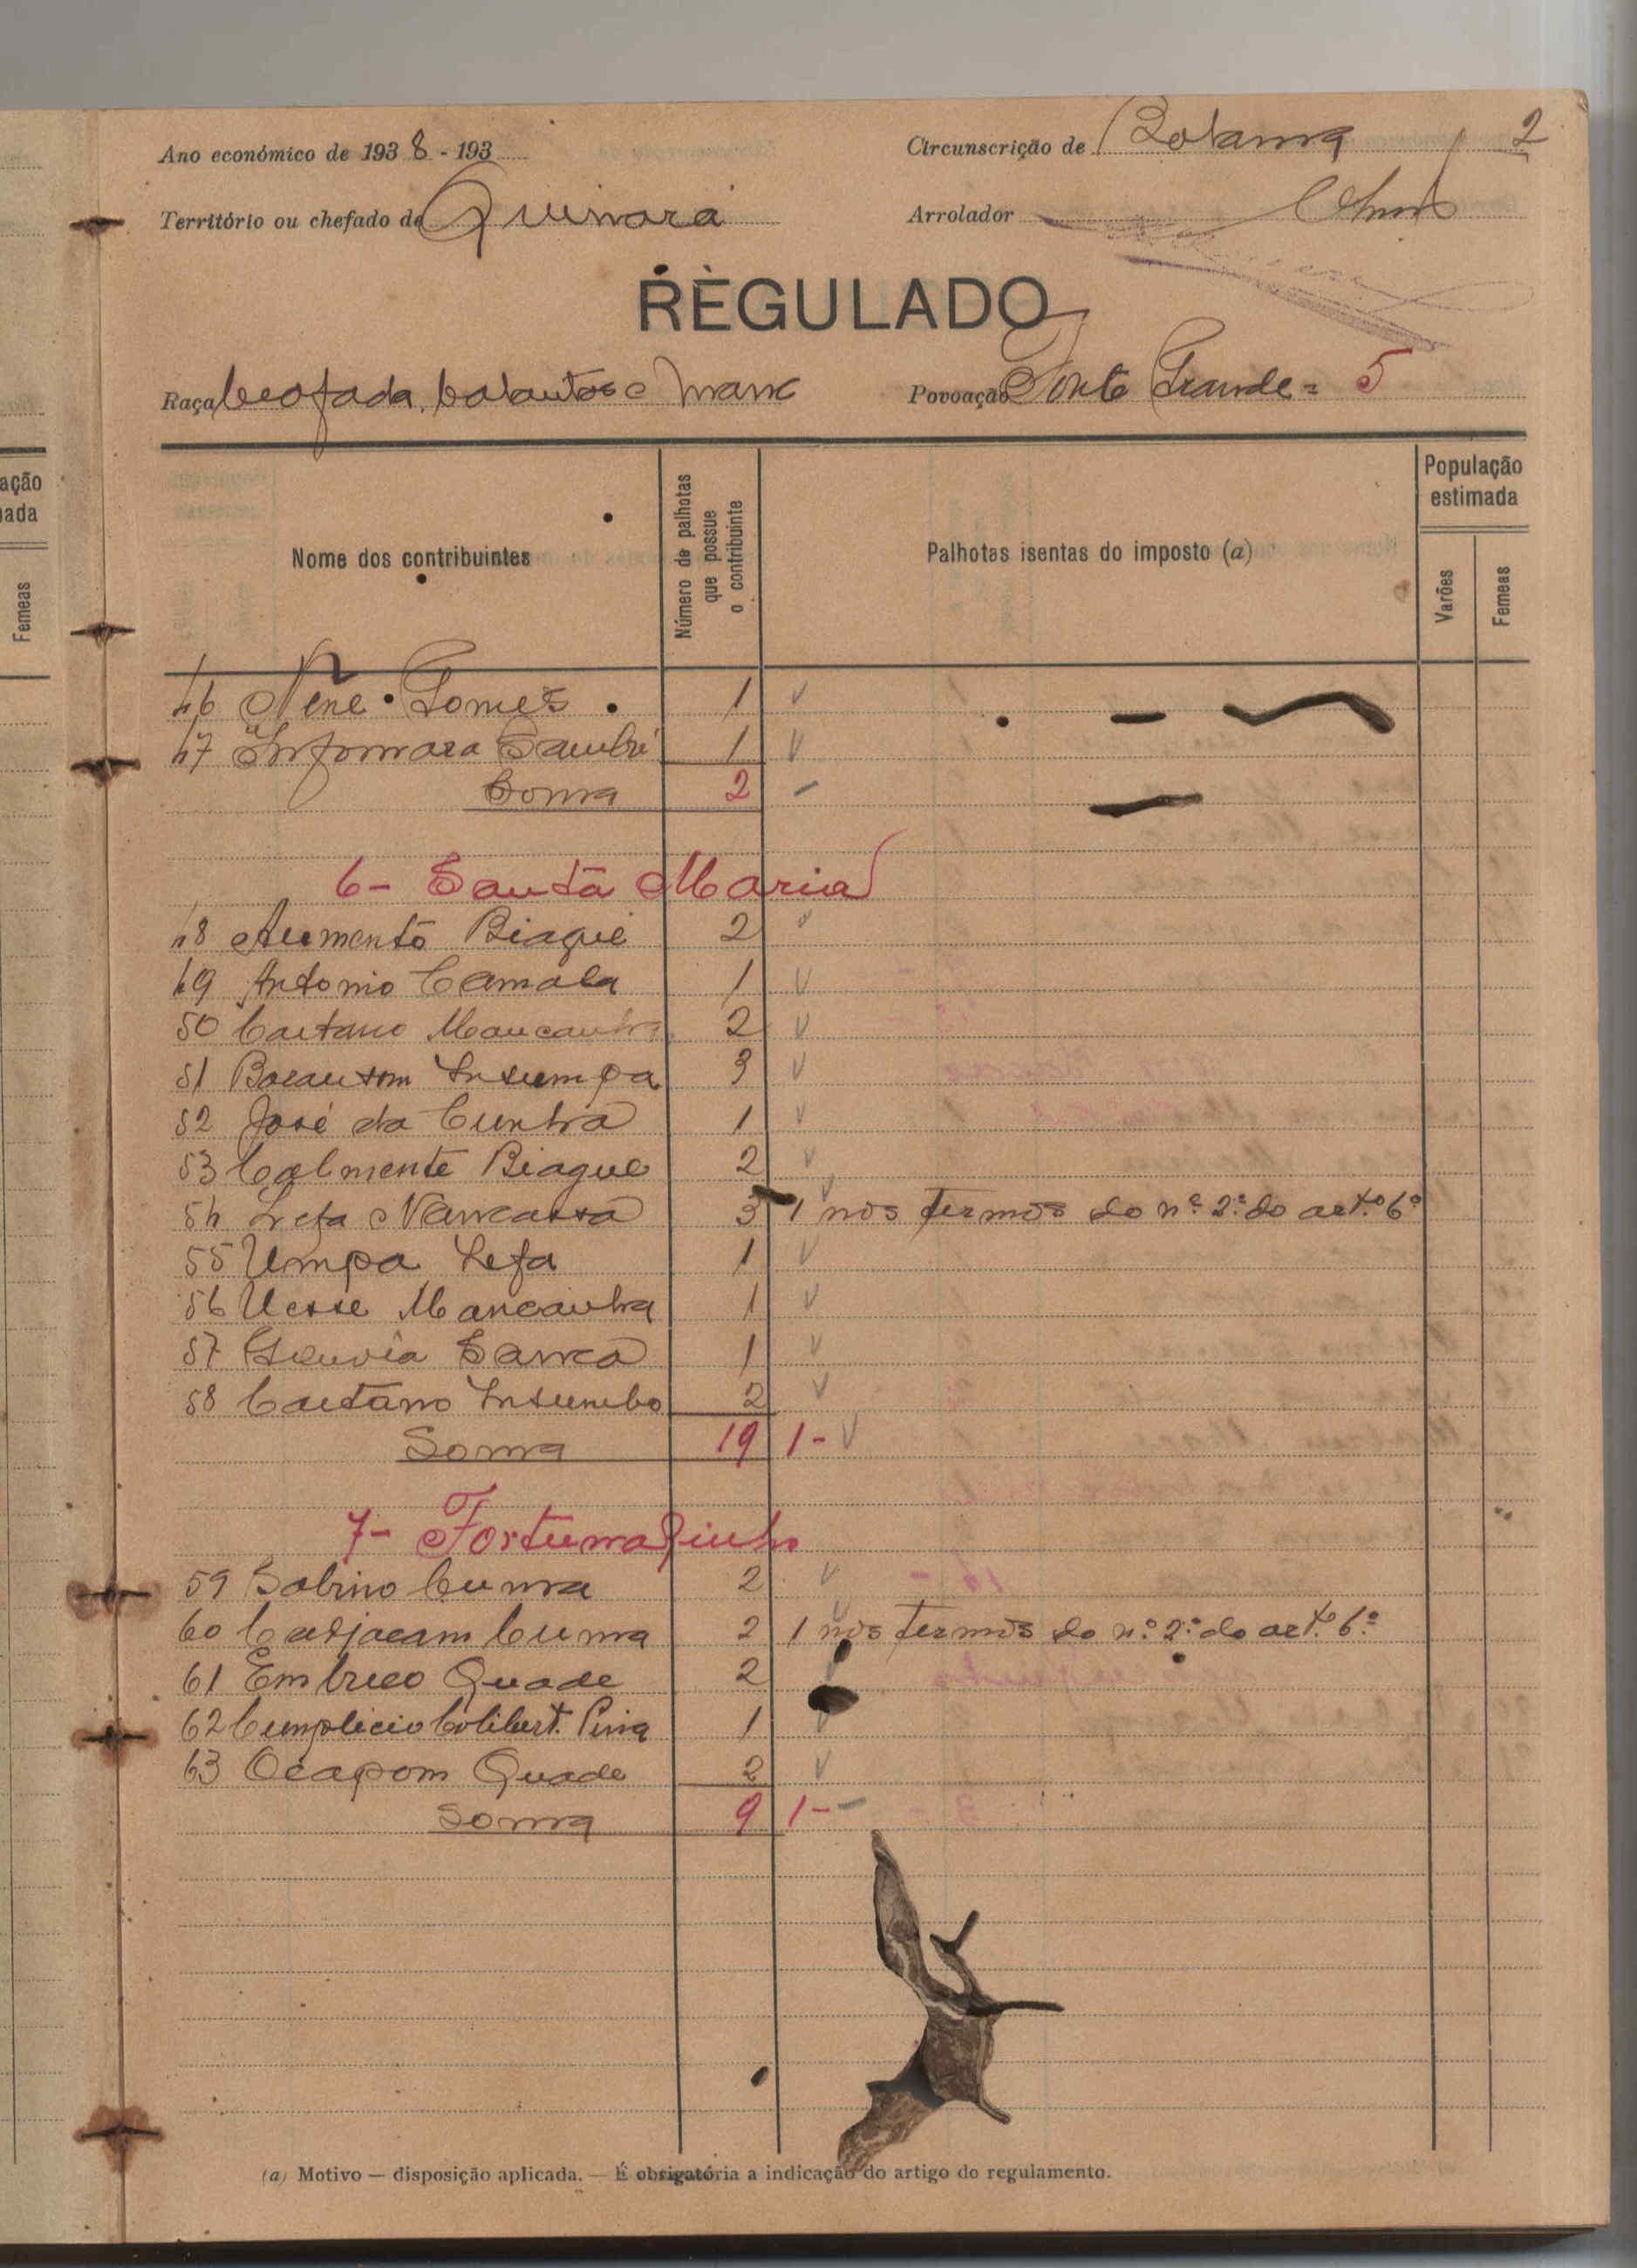 2
Ano económico de 1938 - 193
Circunscrição de Bolama
Território ou chefado de Quinará
Arrolador
REGULADO
Raça beafada, balantas e manc
Povoação Fonte Grande = 5
Nome dos contribuintes
Número de palhotas que possue o contribuinte
Palhotas isentas do imposto (a)
População estimada
Varões
Femeas
ação
ada
Femeas
46 Nene Gomes 1
47 Infomara Sambú 1
Soma 2 -
6- Santa Maria
48 Aumento Biague 2
49 Antonio Camala 1
50 Caetano Mancanha 2
51 Bocantom Insumpa 3
52 José da Cunha 1
53 Calmente Biague 2
54 Lefa Nancassa 3 1 nos termos do nº 2º do artº 6º
55 Umpa Lefa 1
56 Uesse Mancanha 1
57 Sanca 1
58 Caetano Insumbo 2
Soma 19 1-
7- Fortunazinho
59 Sabino Cunna 2
60 Cadjacam Cunna 2 1 nos termos do nº 2º do artº 6º
61 Embrico Quade 2
62 Cumplicio 1
63 Ocapom Quade 2
Soma 9 1-
(a) Motivo — disposição aplicada. — É obrigatória a indicação do artigo do regulamento.